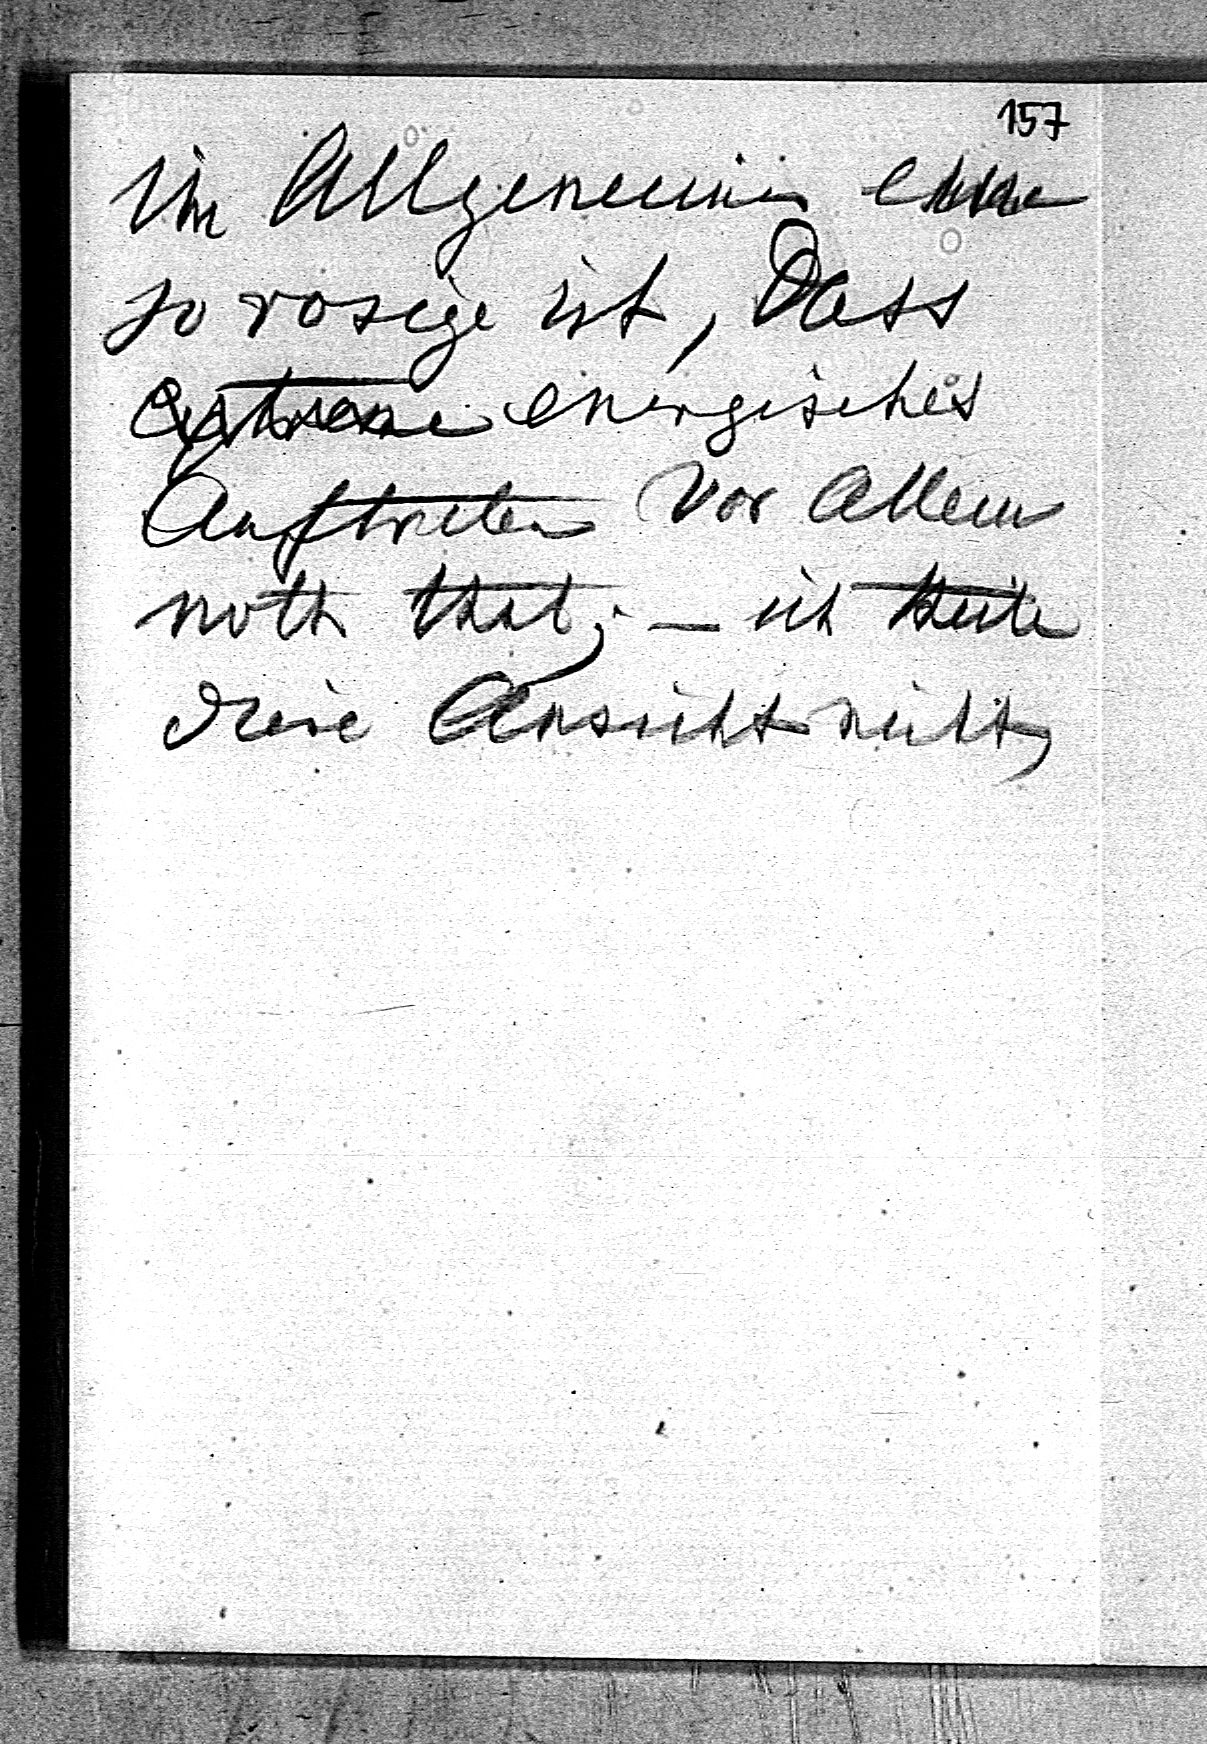 157
im Allgemeinen eine
so rosige ist, dass
extreme energisches
Auftreten vor Allem
noth that; — ich theile
diese Ansicht nicht,